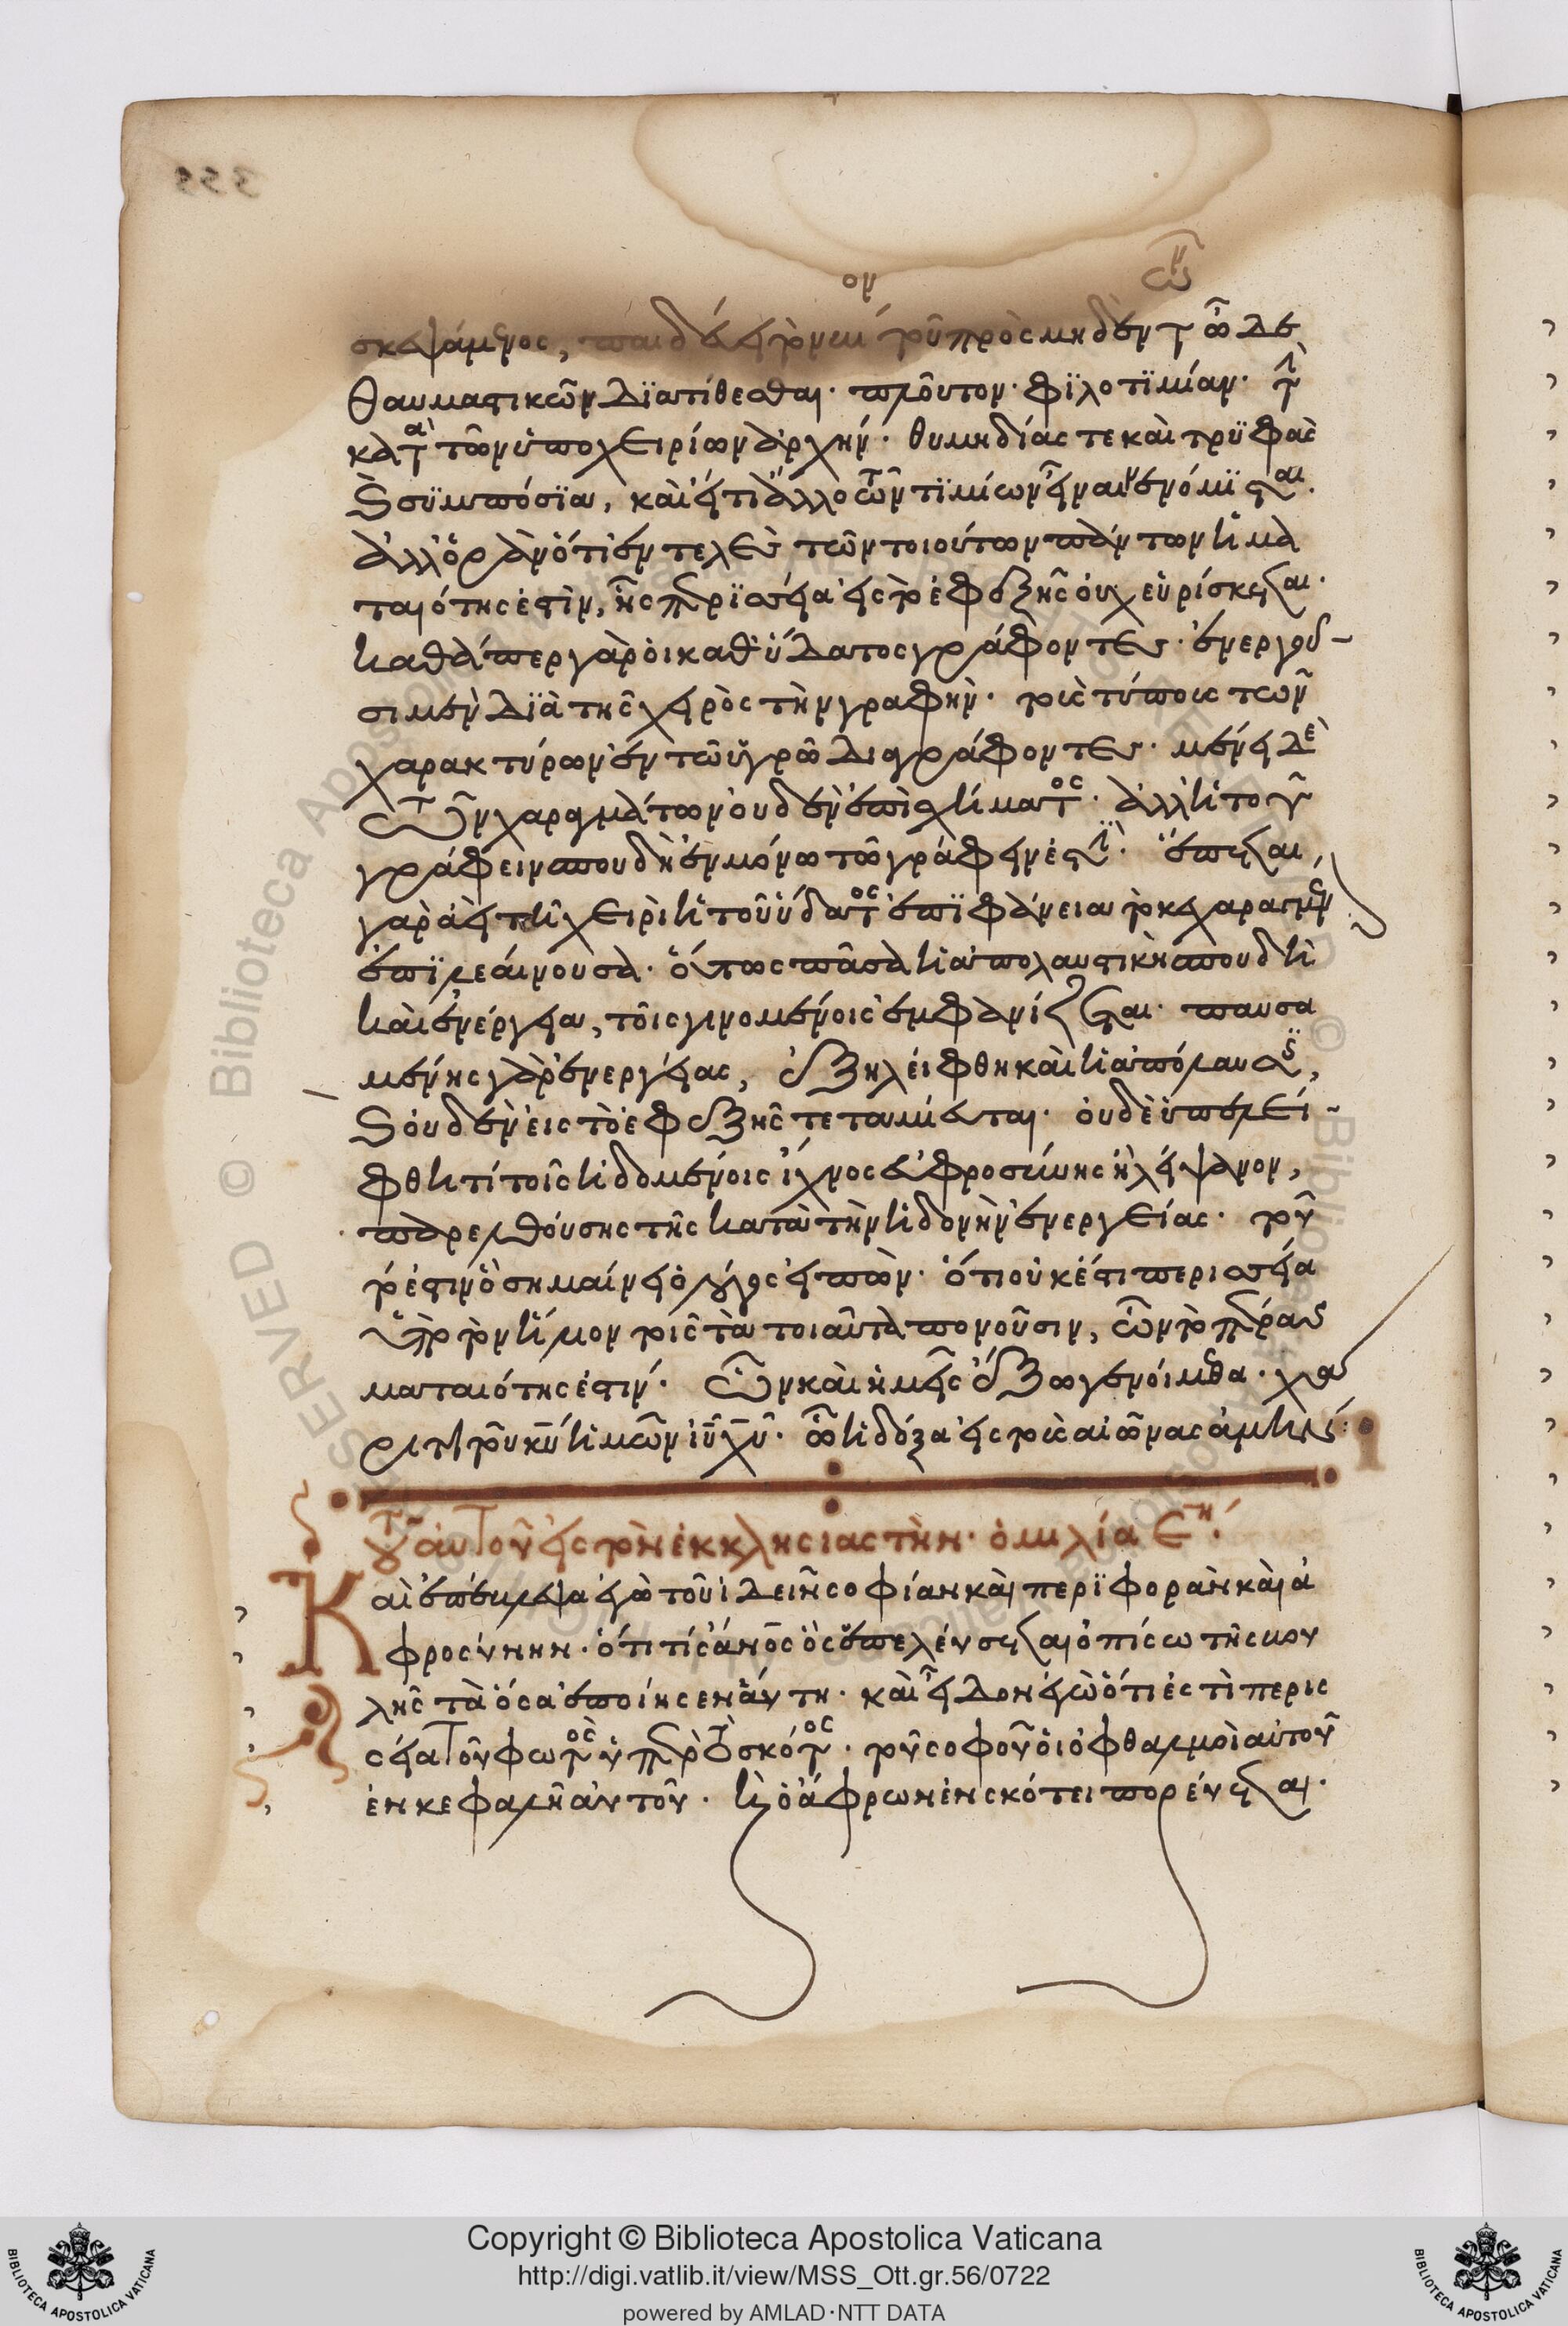 σκεψάμενος, παιδεύει τὸν νοῦν πρὸς μηδὲν τῶν ὧδε
θαυμαστικῶν διατίθεσθαι· πλοῦτον· φιλοτιμίαν· τὴν
κατὰ τῶν ὑποχειρίων ἀρχήν· θυμηδίας τε καὶ τρυφὰς
καὶ συμπόσια, καὶ εἴ τι ἄλλο τῶν τιμίων εἶναι νενόμισται.
ἀλλ' ὁρᾶν ὅτι ἓν τέλος τῶν τοιούτων πάντων ἡ μα
ταιότης ἐστὶν, ἧς περισσεία εἰς τὸ ἐφεξῆς οὐχ εὑρίσκεται.
καθάπερ γὰρ οἱ καθ' ὕδατος γράφοντες· ἐνεργοῦ-
σι μὲν διὰ τῆς χειρὸς τὴν γραφὴν· τοὺς τύπους τῶν
χαρακτύρων ἐν τῶ ὑγρῶ διαγράφοντες· μένει δὲ
τῶν χαραγμάτων οὐδὲν ἐπὶ σχήματος· ἀλλ' ἡ τοῦ
γράφειν σπουδὴ ἐν μόνω τῶ γράφειν ἐστὶ· ἕπεται
γὰρ ἀεὶ τῆ χειρὶ ἡ τοῦ ὕδατος ἐπιφάνεια τὸ κεχαραγμένον
ἐπιλεαίνουσα· οὕτως πᾶσα ἡ ἀπολαυστικὴ σπουδὴ
καὶ ἐνέργεια, τοῖς γινομένοις ἐμφανίζεται· παυσα
μένης γὰρ ἐνεργείας, ἐξηλείφθη καὶ ἡ ἀπόλαυσις,
καὶ οὐδὲν εἰς τὸ ἐφεξῆς τεταμίευται· οὐδὲ ὑπελεί-
φθη τί τοῖς ἡδομένοις ἴχνος εὐφροσύνης ἢ λείψανον,
παρελθούσης τῆς κατὰ τὴν ἡδονὴν ἐνεργείας· τοῦ
τό ἐστιν ὃ σημαίνει ὁ λόγος εἰπὼν· ὅτι οὐκ ἔστι περισσεία
ὑπὸ τὸν ἥλιον τοῖς τὰ τοιαῦτα πονοῦσιν, ὧν τὸ πέρας
ματαιότης ἐστίν· ὧν καὶ ἡμεῖς ἔξω γενοίμεθα· χά
ριτι τοῦ κυ ἡμῶν ιυ χυ· ὧ ἡ δόξα εἰς τοὺς αἰῶνας ἀμήν:
τοῦ αὐτοῦ εἰς τὸν ἐκκλησιαστὴν· ὁμιλία ε·
Καὶ ἐπέβλεψα ἐγὼ τοῦ ἰδεῖν σοφίαν καὶ περιφορὰν καὶ ἀ
φροσύνην· ὅτι τίς ἄνος ὃς ἐπελεύσεται ὀπίσω τῆς βου
λῆς τὰ ὅσα ἐποίησεν αὐτη· καὶ εἶδον ἐγὼ ὅτι ἐστὶ περισ
σεία τοῦ φωτὸς ὑπὲρ τὸ σκότος· τοῦ σοφοῦ οἱ ὀφθαλμοὶ αὐτοῦ
ἐν κεφαλῆ αὐτοῦ· καὶ ὁ ἄφρων ἐν σκότει πορεύεται·
Copyright © Biblioteca Apostolica Vaticana
http://digi.vatlib.it/view/MSS_Ott.gr.56/0722
powered by AMLAD·NTT DATA
BIBLIOTECA APOSTOLICA VATICANA
BIBLIOTECA APOSTOLICA VATICANA